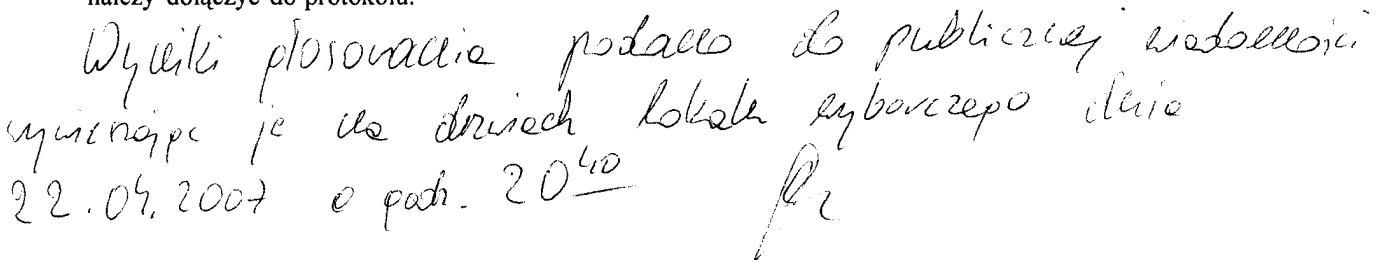 należy dołączyć do protokołu.
Wyniki głosowania podano do publicznej wiadomości
wywieszając je na drzwiach lokalu wyborczego dnia
22.04.2007 o godz. 20⁴⁰